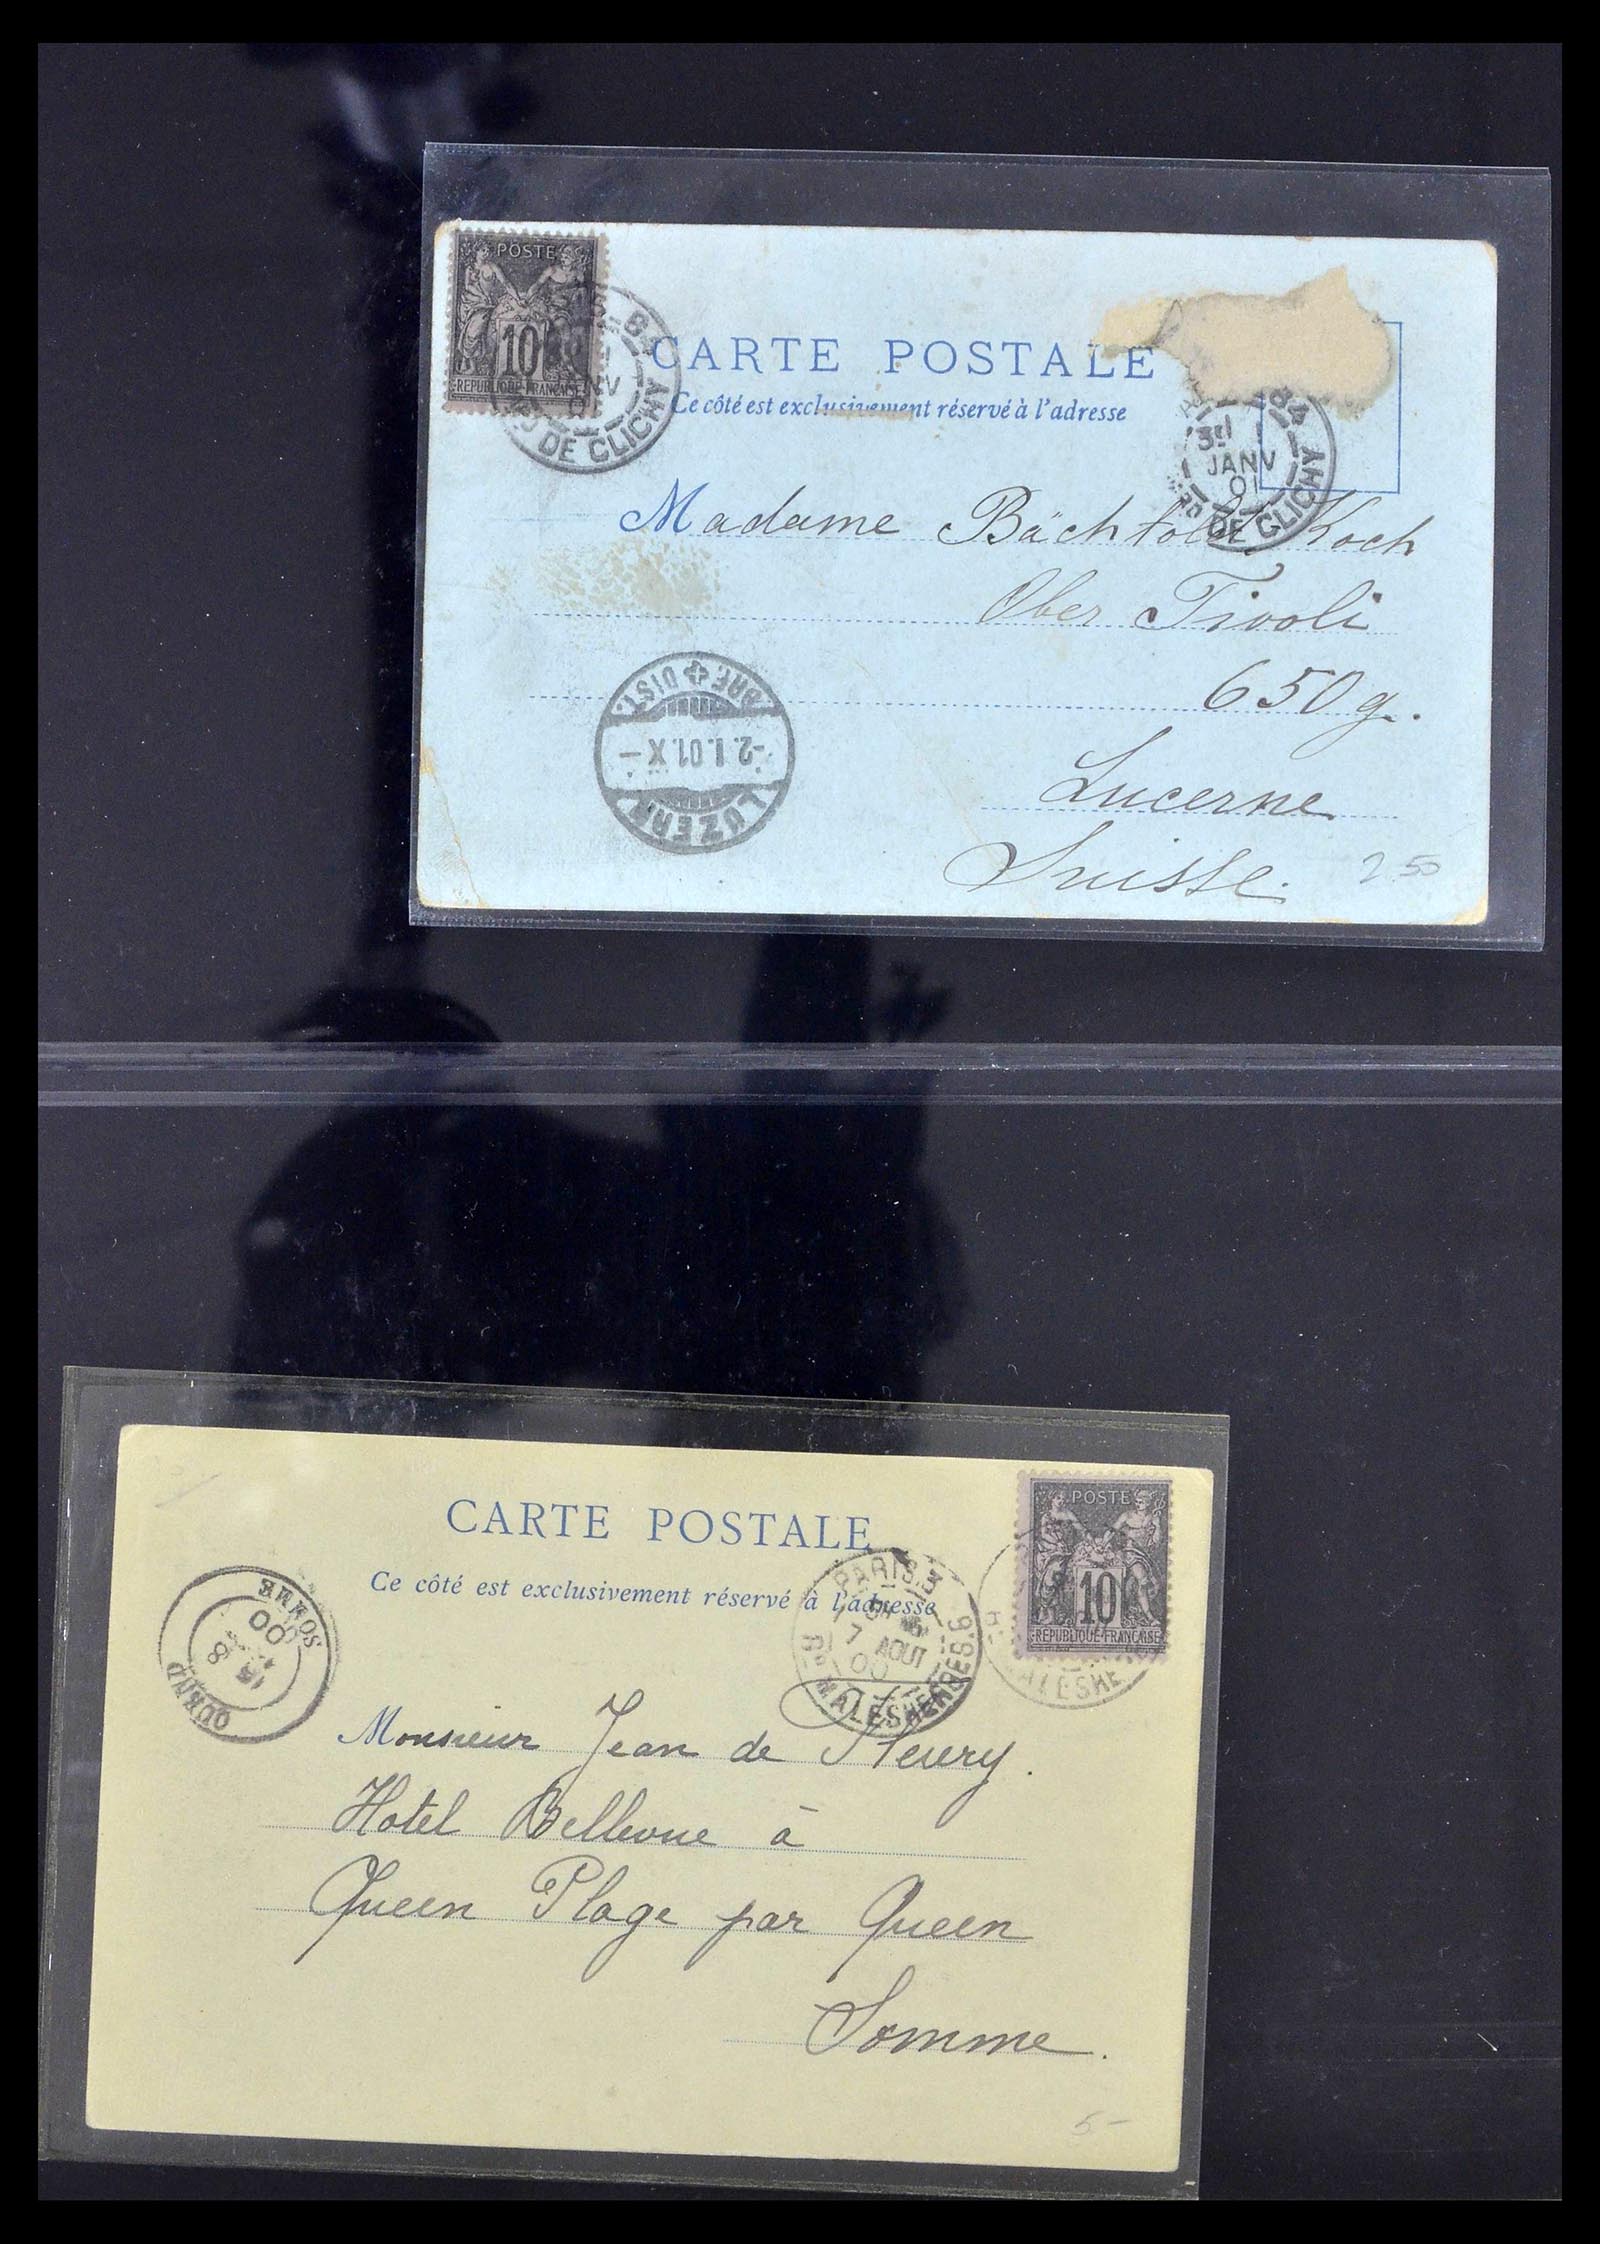 POSTE
10
REPUBLIQUE FRANÇAISE
DE CLICHY
CARTE POSTALE
Ce côté est exclusivement réservé à l'adresse
84
3E
JANV
01
DE CLICHY
Madame Bächtold Koch
Ober Tivoli
650g.
Lucerne
Suisse.
2 50
LUZERN
-2.I.01.X-
BRF. DIST.
CARTE POSTALE
Ce côté est exclusivement réservé à l'adresse
POSTE
10
REPUBLIQUE FRANÇAISE
PARIS.3
7 AOUT
00
Bd MALESHERBES.9
MALESHE
QUEND
8
00
SOMME
Monsieur Jean de Fleury.
Hotel Bellevue à
Queen Plage par Queen
Somme.
5-